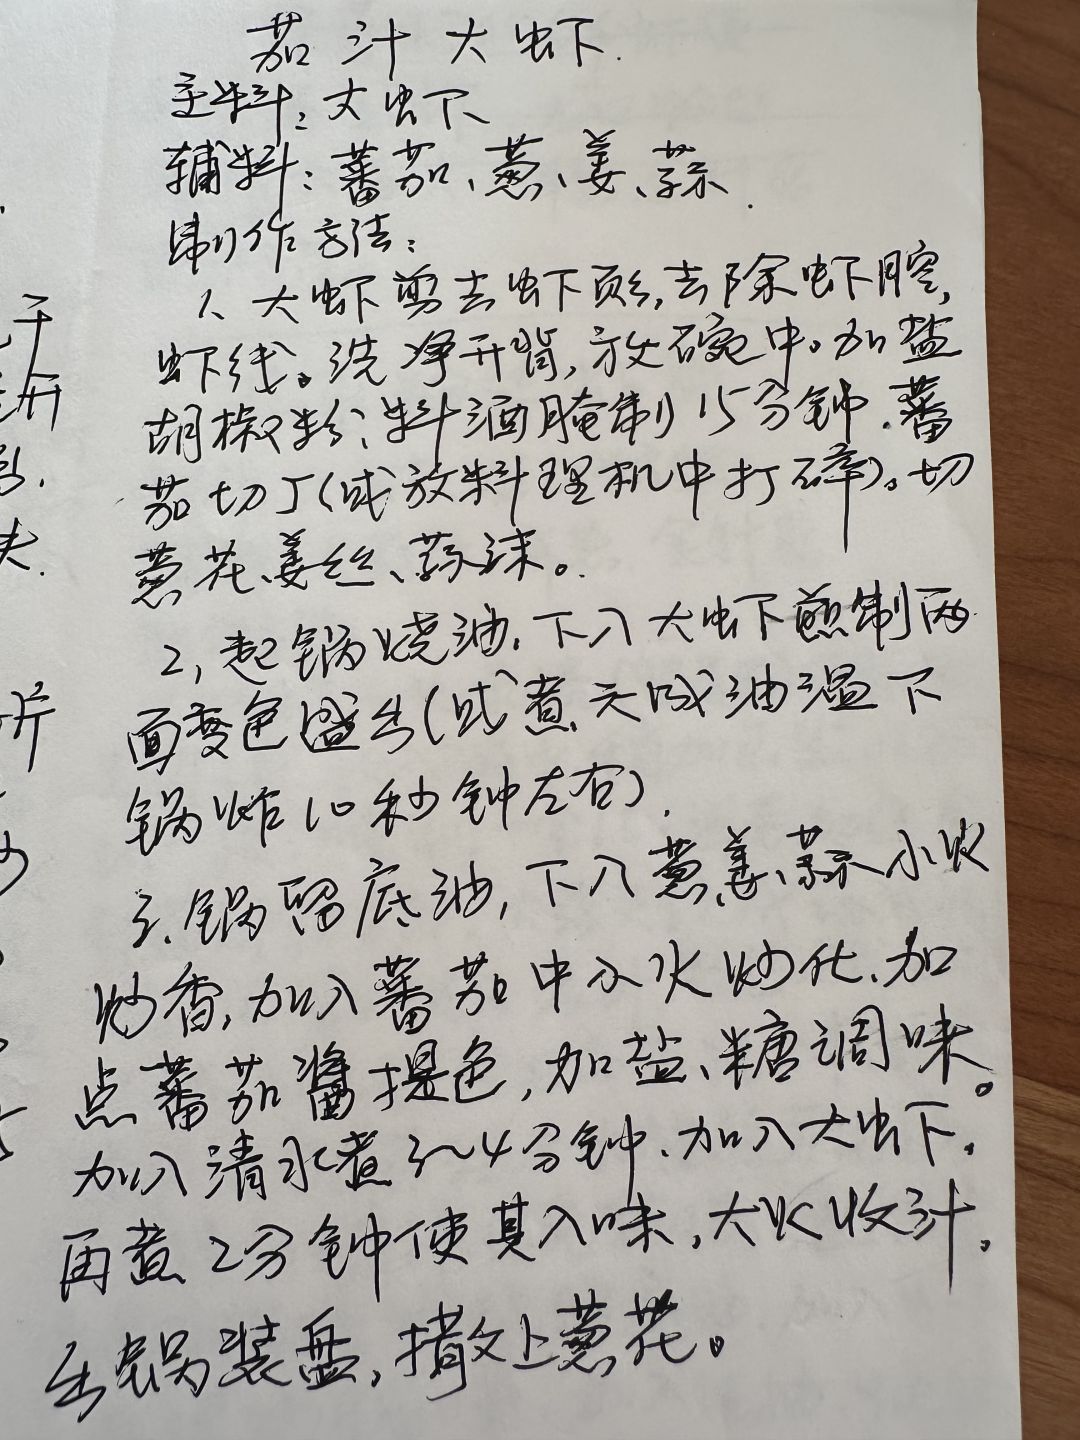 茄汁大虾.
主料:大虾
辅料:蕃茄、葱、姜、蒜.
制作方法:
1、大虾剪去虾须,去除虾腔,
虾线。洗净开背,放碗中。加盐
胡椒粉、料酒腌制15分钟.蕃
茄切丁(或放料理机中打碎)。切
葱花、姜丝、蒜沫。
2,起锅烧油.下入大虾煎制两
面变色盛出(或者六成油温下
锅炸10秒钟左右).
3.锅留底油,下入葱、姜、蒜小火
炒香,加入蕃茄中小火炒化.加
点蕃茄酱提色,加盐、糖调味。
加入清水煮3~4分钟.加入大虾.
再煮2分钟使其入味,大火收汁.
出锅装盘,撒上葱花。
干
开
夫.
片